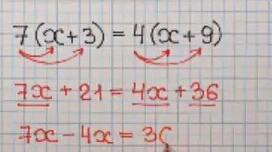 7(x+3) = 4(x+9)
7x + 21 = 4x + 36
7x - 4x = 36